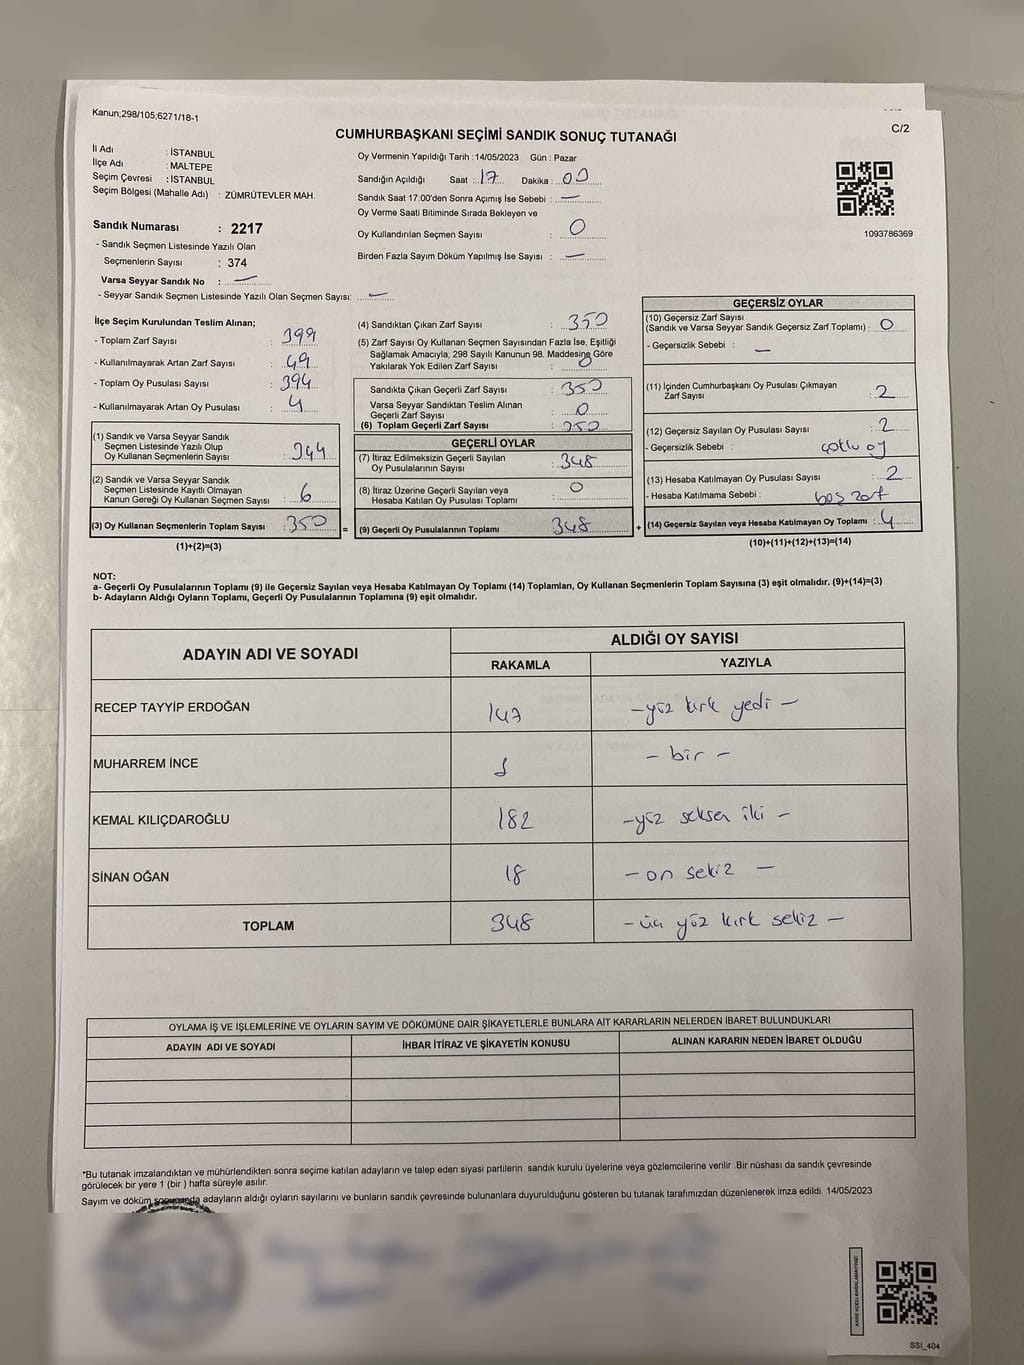 Kanun;298/105,6271/18-1
C/2
CUMHURBAŞKANI SEÇİMİ SANDIK SONUÇ TUTANAĞI
İl Adı : İSTANBUL
İlçe Adı : MALTEPE
Seçim Çevresi : İSTANBUL
Seçim Bölgesi (Mahalle Adı) : ZÜMRÜTEVLER MAH.
Sandık Numarası : 2217
- Sandık Seçmen Listesinde Yazılı Olan
Seçmenlerin Sayısı : 374
Varsa Seyyar Sandık No : —
- Seyyar Sandık Seçmen Listesinde Yazılı Olan Seçmen Sayısı: —
Oy Vermenin Yapıldığı Tarih : 14/05/2023 Gün : Pazar
Sandığın Açıldığı Saat : 17 Dakika : 00
Sandık Saat 17:00'den Sonra Açımış İse Sebebi : —
Oy Verme Saati Bitiminde Sırada Bekleyen ve
Oy Kullandırılan Seçmen Sayısı : 0
Birden Fazla Sayım Döküm Yapılmış İse Sayısı : —
1093786369
İlçe Seçim Kurulundan Teslim Alınan;
- Toplam Zarf Sayısı : 399
- Kullanılmayarak Artan Zarf Sayısı : 49
- Toplam Oy Pusulası Sayısı : 394
- Kullanılmayarak Artan Oy Pusulası : 4
(1) Sandık ve Varsa Seyyar Sandık
Seçmen Listesinde Yazılı Olup
Oy Kullanan Seçmenlerin Sayısı : 344
(2) Sandık ve Varsa Seyyar Sandık
Seçmen Listesinde Kayıtlı Olmayan
Kanun Gereği Oy Kullanan Seçmen Sayısı : 6
(3) Oy Kullanan Seçmenlerin Toplam Sayısı : 350 =
(1)+(2)=(3)
(4) Sandıktan Çıkan Zarf Sayısı : 350
(5) Zarf Sayısı Oy Kullanan Seçmen Sayısından Fazla İse, Eşitliği
Sağlamak Amacıyla, 298 Sayılı Kanunun 98. Maddesine Göre
Yakılarak Yok Edilen Zarf Sayısı : 0
Sandıkta Çıkan Geçerli Zarf Sayısı : 350
Varsa Seyyar Sandıktan Teslim Alınan
Geçerli Zarf Sayısı : 0
(6) Toplam Geçerli Zarf Sayısı : 350
GEÇERLİ OYLAR
(7) İtiraz Edilmeksizin Geçerli Sayılan
Oy Pusulalarının Sayısı : 348
(8) İtiraz Üzerine Geçerli Sayılan veya
Hesaba Katılan Oy Pusulası Toplamı : 0
(9) Geçerli Oy Pusulalarının Toplamı : 348 +
GEÇERSİZ OYLAR
(10) Geçersiz Zarf Sayısı
(Sandık ve Varsa Seyyar Sandık Geçersiz Zarf Toplamı) : 0
- Geçersizlik Sebebi : —
(11) İçinden Cumhurbaşkanı Oy Pusulası Çıkmayan
Zarf Sayısı : 2
(12) Geçersiz Sayılan Oy Pusulası Sayısı : 2
- Geçersizlik Sebebi : çoklu oy
(13) Hesaba Katılmayan Oy Pusulası Sayısı : 2
- Hesaba Katılmama Sebebi : boş zarf
(14) Geçersiz Sayılan veya Hesaba Katılmayan Oy Toplamı : 4
(10)+(11)+(12)+(13)=(14)
NOT:
a- Geçerli Oy Pusulalarının Toplamı (9) ile Geçersiz Sayılan veya Hesaba Katılmayan Oy Toplamı (14) Toplamları, Oy Kullanan Seçmenlerin Toplam Sayısına (3) eşit olmalıdır. (9)+(14)=(3)
b- Adayların Aldığı Oyların Toplamı, Geçerli Oy Pusulalarının Toplamına (9) eşit olmalıdır.
ADAYIN ADI VE SOYADI
ALDIĞI OY SAYISI
RAKAMLA YAZIYLA
RECEP TAYYİP ERDOĞAN 147 —yüz kırk yedi—
MUHARREM İNCE 1 —bir—
KEMAL KILIÇDAROĞLU 182 —yüz seksen iki—
SİNAN OĞAN 18 —on sekiz—
TOPLAM 348 —üç yüz kırk sekiz—
OYLAMA İŞ VE İŞLEMLERİNE VE OYLARIN SAYIM VE DÖKÜMÜNE DAİR ŞİKAYETLERLE BUNLARA AİT KARARLARIN NELERDEN İBARET BULUNDUKLARI
ADAYIN ADI VE SOYADI İHBAR İTİRAZ VE ŞİKAYETİN KONUSU ALINAN KARARIN NEDEN İBARET OLDUĞU
*Bu tutanak imzalandıktan ve mühürlendikten sonra seçime katılan adayların ve talep eden siyasi partilerin sandık kurulu üyelerine veya gözlemcilerine verilir .Bir nüshası da sandık çevresinde
görülecek bir yere 1 (bir ) hafta süreyle asılır.
Sayım ve döküm sonucunda adayların aldığı oyların sayılarını ve bunların sandık çevresinde bulunanlara duyurulduğunu gösteren bu tutanak tarafımızdan düzenlenerek imza edildi. 14/05/2023
KARE KODU KARALAMAYINIZ!
SSI_404